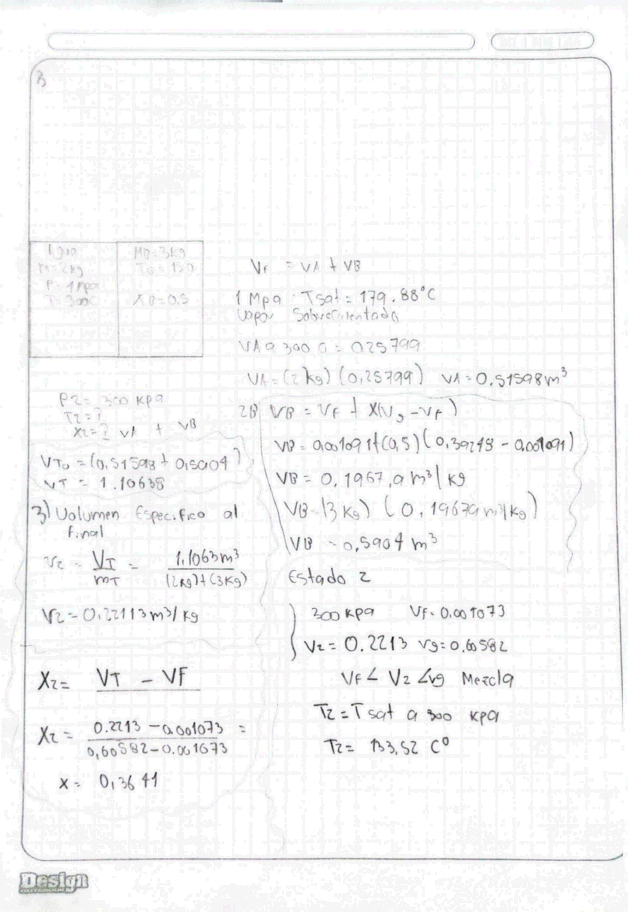 3
Agua
M=2kg
P=1Mpa
T=300
MB=3kg
TB=150
XB=0.5
VF = VA + VB
1 Mpa : Tsat = 179.88°C
Vapor Sobrecalentada
VA a 300 = 0.25799
VA = (2 kg) (0,25799) VA = 0,51598 m³
P2 = 300 kpa
T2 = ?
X2 = ? VA + VB
VTo = (0,51598 + 0,5904)
VT = 1.10638
3) Volumen Especifico al
final
V2 = VT / mT = 1.1063 m³ / (2kg)+(3kg)
V2 = 0,22113 m³/kg
X2 = VT - VF
X2 = 0.2213 - 0.001073 / 0,60582 - 0.001073 =
X = 0,3641
2B VB = VF + X(Vg - VF)
VB = 0.001091 + (0,5) (0,39248 - 0,001091)
VB = 0,1967,9 m³/kg
VB = (3 kg) (0,19679 m³/kg)
VB = 0,5904 m³
Estado 2
300 kpa VF = 0.001073
V2 = 0.2213 Vg = 0,60582
VF < V2 < Vg Mezcla
T2 = Tsat a 300 kpa
T2 = 133,52 C°
Design